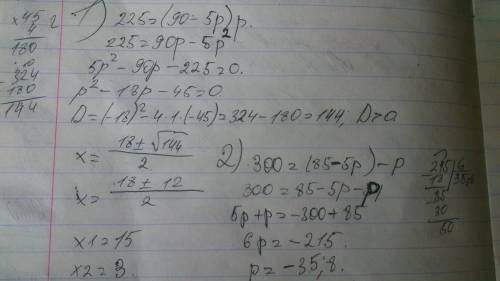 ×45
4
180
324
180
144
1) 225=(90-5p)p.
225=90p-5p²
5p²-90p-225=0.
p²-18p-45=0.
D=(-18)²-4·1·(-45)=324-180=144; D>0
x= 18±√144 / 2
x= 18±12 / 2
x1=15
x2=3
2) 300=(85-5p)-p
300=85-5p-p
5p+p=-300+85
6p=-215.
p=-35,8.
215 6
18 35,8
35
30
50